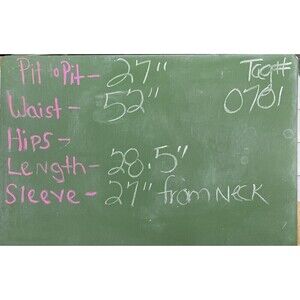 Pit o Pit - 27" Tag#
Waist - 52" 0701
Hips -
Length - 28.5"
Sleeve - 27" from NECK